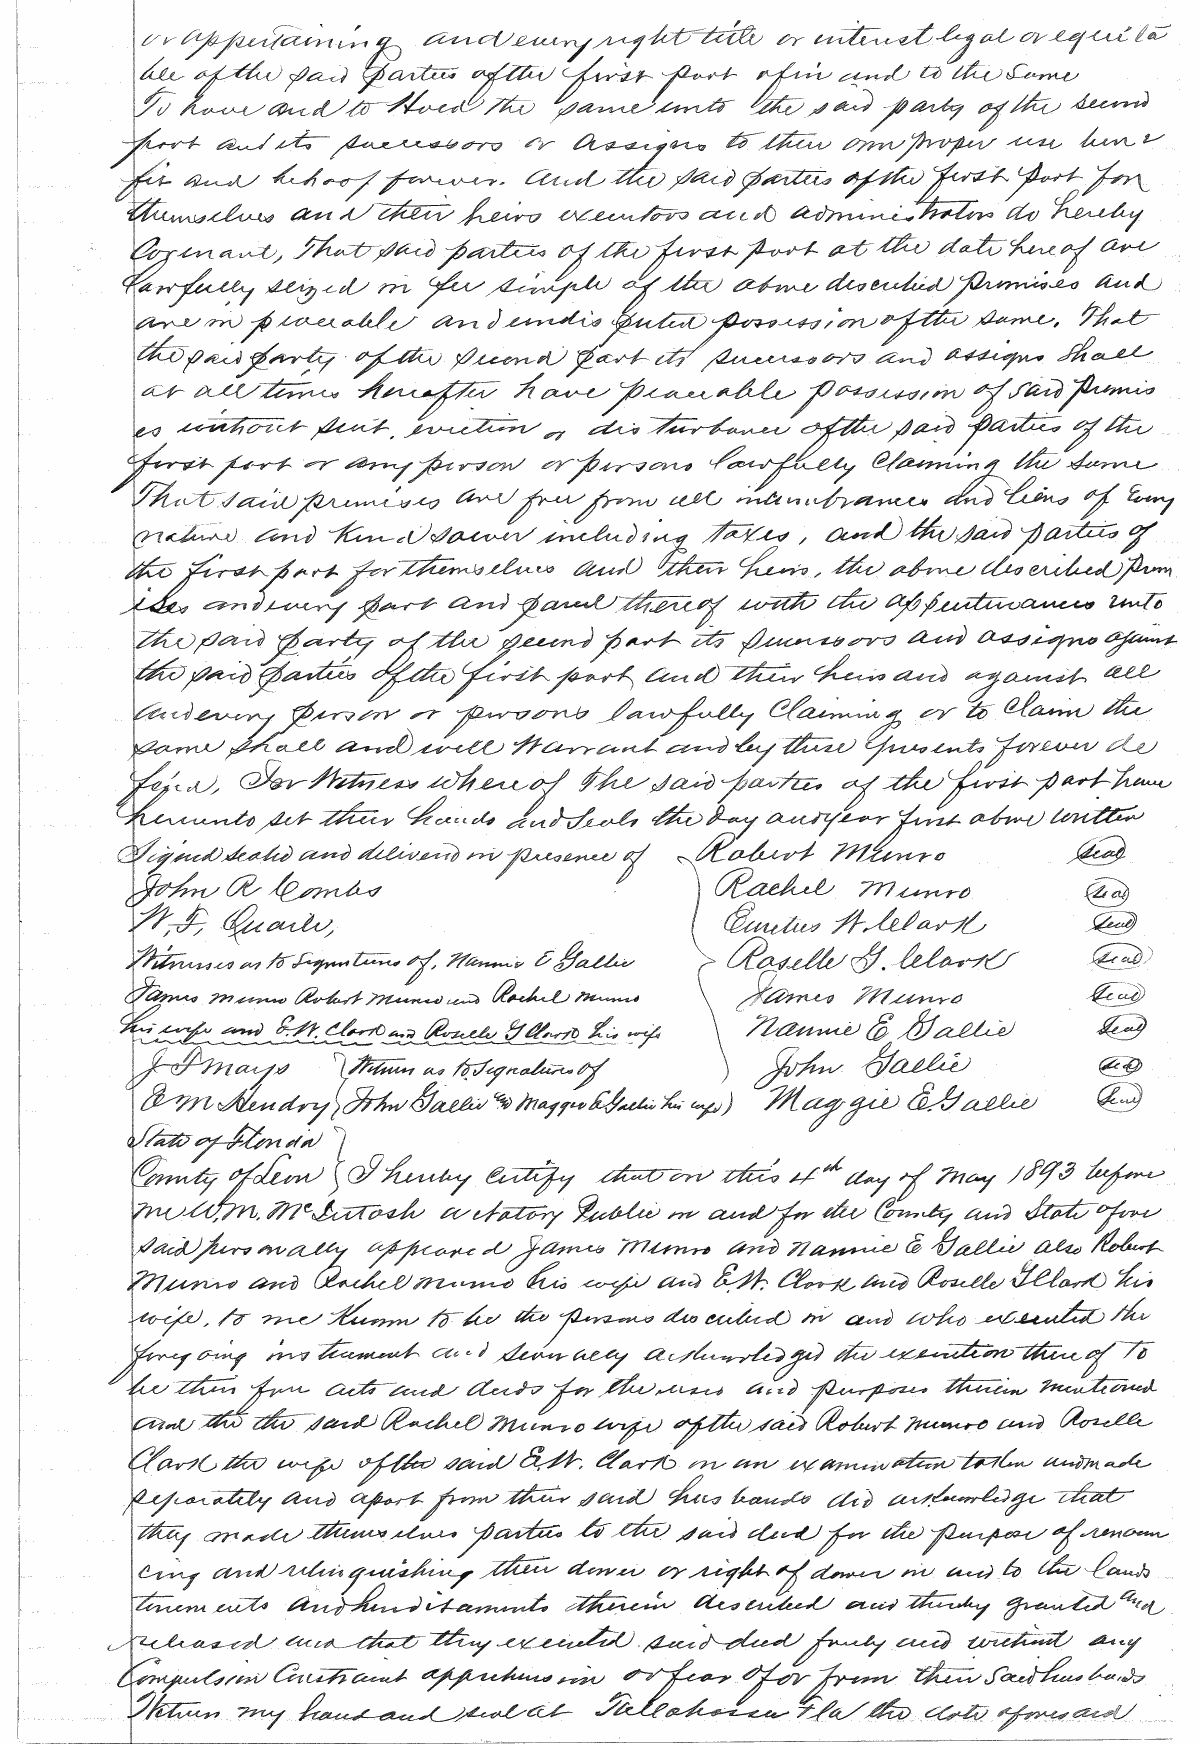 or appertaining and every right title or interest legal or equita
ble of the said parties of the first part of in and to the same
To have and to Hold the same unto the said party of the second
part and its successors or assigns to their own proper use bene
fit and behoof forever. And the said parties of the first part for
themselves and their heirs executors and administrators do hereby
Covenant, That said parties of the first part at the date hereof are
lawfully seized in fee simple of the above described premises and
are in peaceable and undisputed possession of the same. That
the said party of the second part its successors and assigns shall
at all times hereafter have peaceable possession of said premis
es without suit, eviction or disturbance of the said parties of the
first part or any person or persons lawfully claiming the same
That said premises are free from all incumbrances and liens of every
nature and kind soever including taxes, and the said parties of
the first part for themselves and their heirs, the above described prem
ises and every part and parcel thereof with the appurtenances unto
the said party of the second part its successors and assigns against
the said parties of the first part and their heirs and against all
and every person or persons lawfully claiming or to claim the
same shall and will warrant and by these presents forever de
fend, In Witness whereof The said parties of the first part have
hereunto set their hands and seals the day and year first above written
Signed sealed and delivered in presence of Robert Munro Seal
John R Combs Rachel Munro Seal
W. F. Quaile, W. Clark Seal
Witnesses as to Signatures of, Nannie E Gallie Roselle G. Clark Seal
James Munro Robert Munro and Rachel Munro James Munro Seal
his wife and E. W. Clark and Roselle G Clark his wife Nannie E Gallie Seal
J F Mays Witness as to Signatures of John Gallie Seal
E M Hendry John Gallie and Maggie E. Gallie his wife) Maggie E. Gallie Seal
State of Florida
County of Leon I hereby certify that on this 4th day of May 1893 before
me W. M. McIntosh a Notary Public in and for the County and State afore
said personally appeared James Munro and Nannie E Gallie also Robert
Munro and Rachel Munro his wife and E. W. Clark and Roselle G Clark his
wife, to me known to be the persons described in and who executed the
foregoing instrument and severally acknowledged the execution thereof to
be their free acts and deeds for the uses and purposes therein mentioned
and the the said Rachel Munro wife of the said Robert Munro and Roselle
Clark the wife of the said E. W. Clark on an examination taken and made
separately and apart from their said husbands did acknowledge that
they made themselves parties to the said deed for the purpose of renoun
cing and relinquishing their dower or right of dower in and to the lands
tenements and hereditaments therein described and thereby granted and
released and that they executed said deed freely and without any
Compulsion Constraint apprehension or fear of or from their said husbands
Witness my hand and seal at Tallahassee Fla the date aforesaid